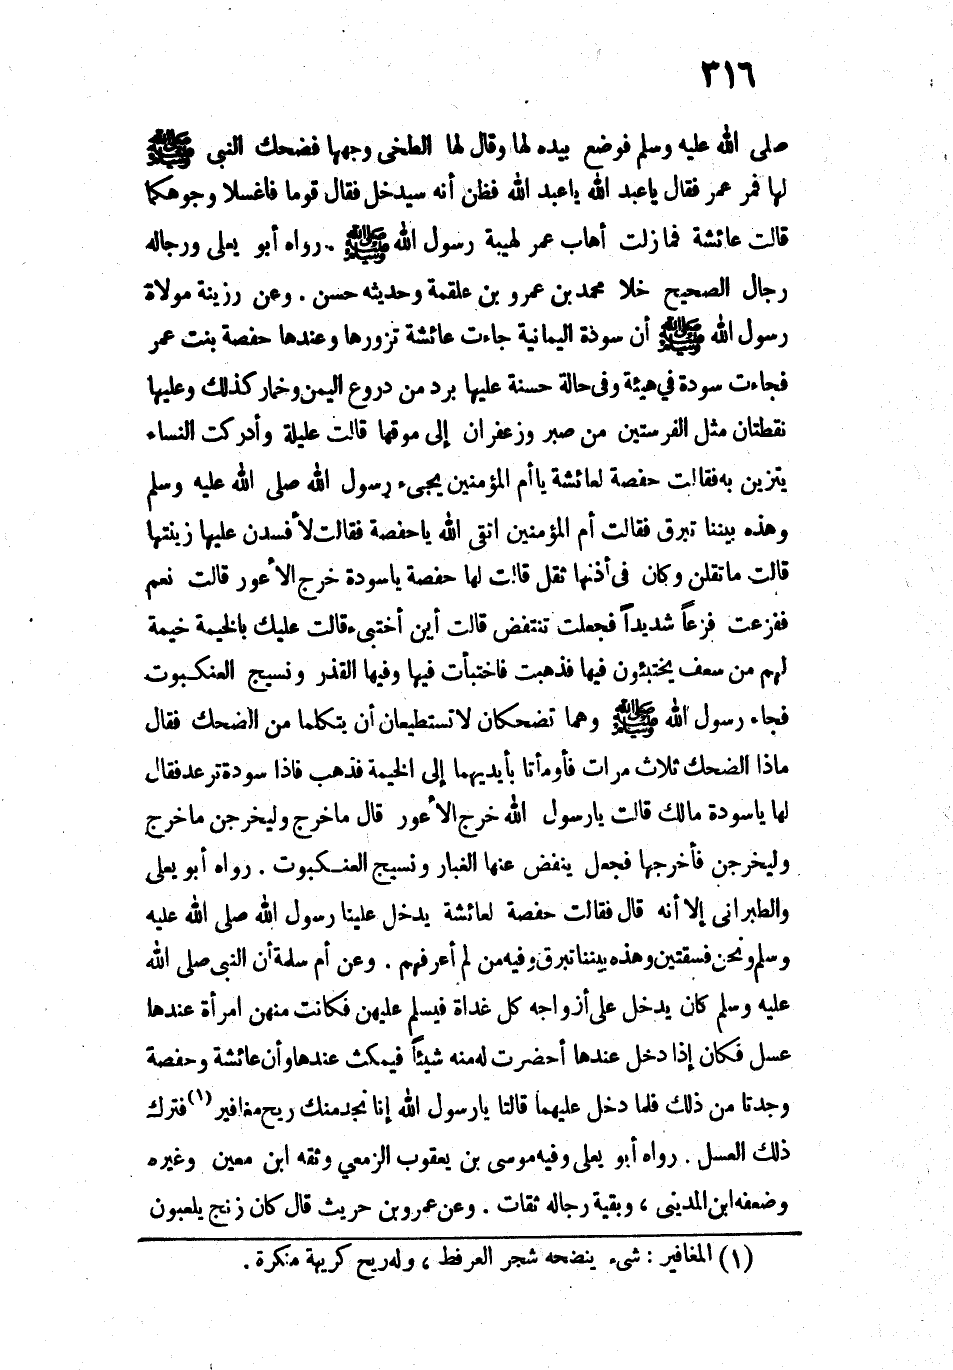 ٣١٦
صلى الله عليه وسلم فوضع بيده لها وقال لها الطخى وجهها فضحك النبي ﷺ
لها فمر عمر فقال ياعبد الله ياعبد الله فظن أنه سيدخل فقال قوما فاغسلا وجوهكما
قالت عائشة فمازلت أهاب عمر لهيبة رسول الله ﷺ . رواه أبو يعلى ورجاله
رجال الصحيح خلا محمد بن عمرو بن علقمة وحديثه حسن . وعن رزينة مولاة
رسول الله ﷺ أن سوذة اليمانية جاءت عائشة تزورها وعندها حفصة بنت عمر
فجاءت سودة في هيئة وفى حالة حسنة عليها برد من دروع اليمن وخمار كذلك وعليها
نقطتان مثل الفرستين من صبر وزعفران إلى موقها قالت عليلة وأدركت النساء
يتزين به فقالت حفصة لعائشة ياأم المؤمنين يجيء رسول الله صلى الله عليه وسلم
وهذه بيننا تبرق فقالت أم المؤمنين اتقى الله ياحفصة فقالت لأفسدن عليها زينتها
قالت ماتقلن وكان فى أذنها ثقل قالت لها حفصة ياسودة خرج الأعور قالت نعم
ففزعت فزعاً شديداً فجعلت تنتفض قالت أين أختبىء قالت عليك بالخيمة خيمة
لهم من سعف يختبئون فيها فذهبت فاختبأت فيها وفيها القذر ونسيج العنكبوت
فجاء رسول الله ﷺ وهما تضحكان لاتستطيعان أن يتكلما من الضحك فقال
ماذا الضحك ثلاث مرات فأومأتا بأيديهما إلى الخيمة فذهب فاذا سودة ترعد فقال
لها ياسودة مالك قالت يارسول الله خرج الأعور قال ماخرج وليخرجن ماخرج
وليخرجن فأخرجها فجعل ينفض عنها الغبار ونسيج العنكبوت . رواه أبو يعلى
والطبرانى إلا أنه قال فقالت حفصة لعائشة يدخل علينا رسول الله صلى الله عليه
وسلم ونحن فسقتين وهذه بيننا تبرق وفيه من لم أعرفهم . وعن أم سلمة أن النبى صلى الله
عليه وسلم كان يدخل على أزواجه كل غداة فيسلم عليهن فكانت منهن امرأة عندها
عسل فكان إذا دخل عندها أحضرت له منه شيئاً فيمكث عندها وأن عائشة وحفصة
وجدتا من ذلك فلما دخل عليهما قالتا يارسول الله إنا نجد منك ريح مغافير (١) فترك
ذلك العسل . رواه أبو يعلى وفيه موسى بن يعقوب الزمعي وثقه ابن معين وغيره
وضعفه ابن المدينى ، وبقية رجاله ثقات . وعن عمرو بن حريث قال كان زنج يلعبون
(١) المغافير : شىء ينضحه شجر العرفط ، وله ريح كريهة منكرة .